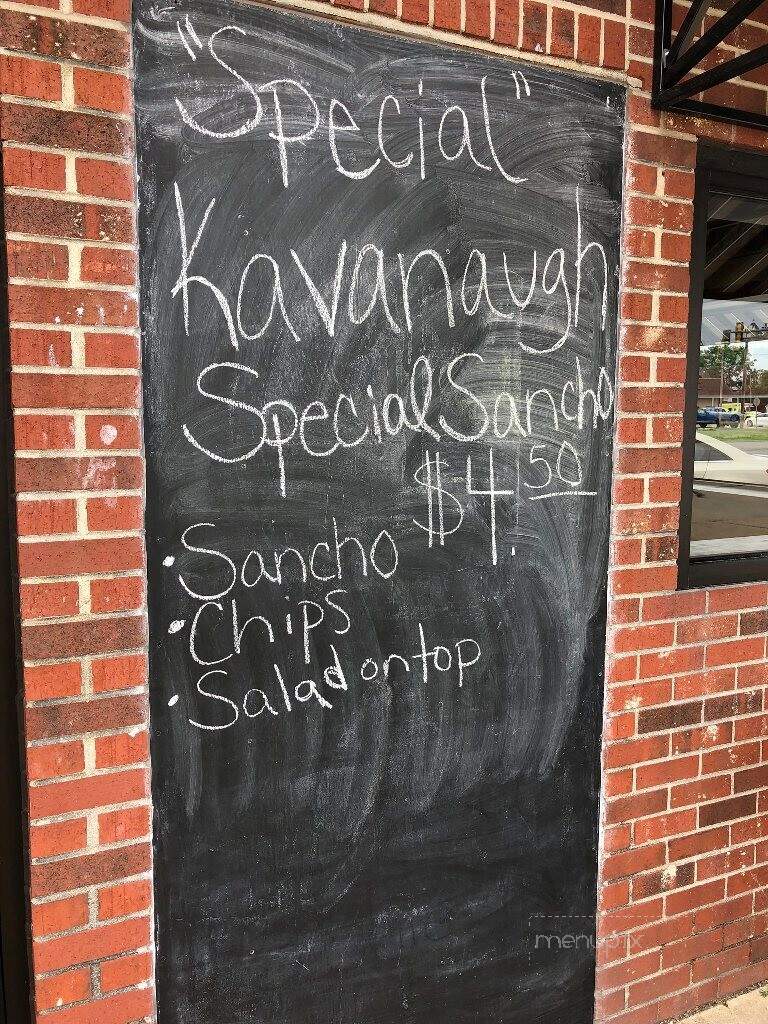 "Special"
Kavanaugh
Special Sancho
$4.50
• Sancho
• Chips
• Salad on top
menupix